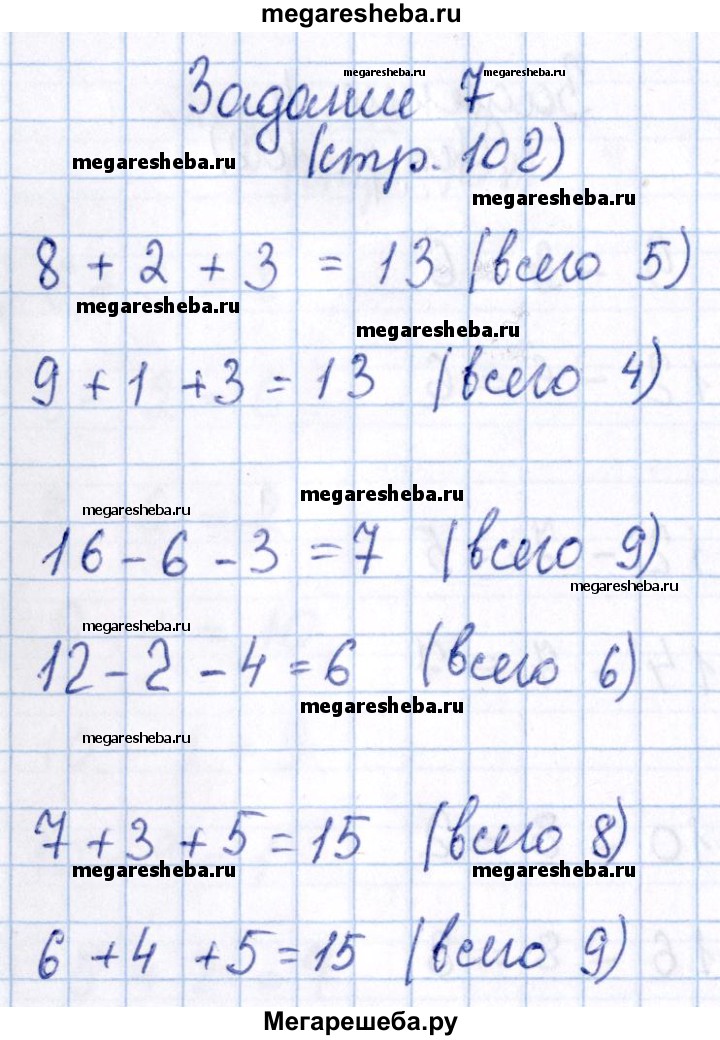 megaresheba.ru
Задание 7
megaresheba.ru megaresheba.ru
(стр. 102)
megaresheba.ru
megaresheba.ru
8 + 2 + 3 = 13 (всего 5)
megaresheba.ru
megaresheba.ru
9 + 1 + 3 = 13 (всего 4)
megaresheba.ru
megaresheba.ru
16 - 6 - 3 = 7 (всего 9)
megaresheba.ru
megaresheba.ru
12 - 2 - 4 = 6 (всего 6)
megaresheba.ru
megaresheba.ru
7 + 3 + 5 = 15 (всего 8)
megaresheba.ru megaresheba.ru
6 + 4 + 5 = 15 (всего 9)
Мегарешеба.ру